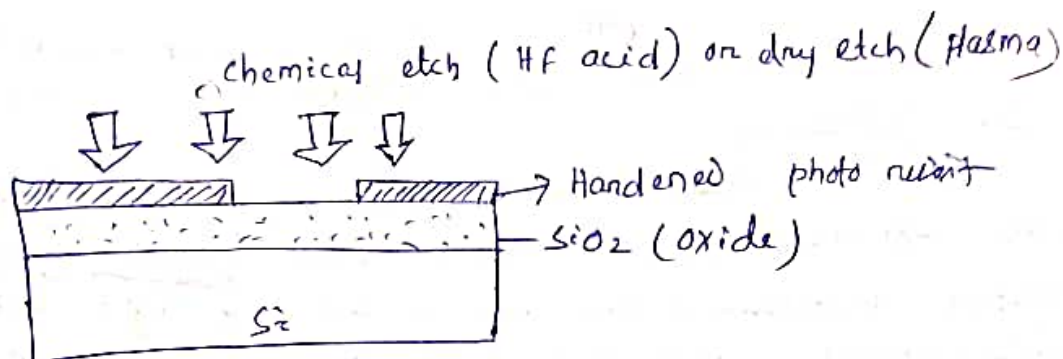 chemical etch (HF acid) or dry etch (Plasma)
Hardened photo resist
SiO2 (oxide)
Si